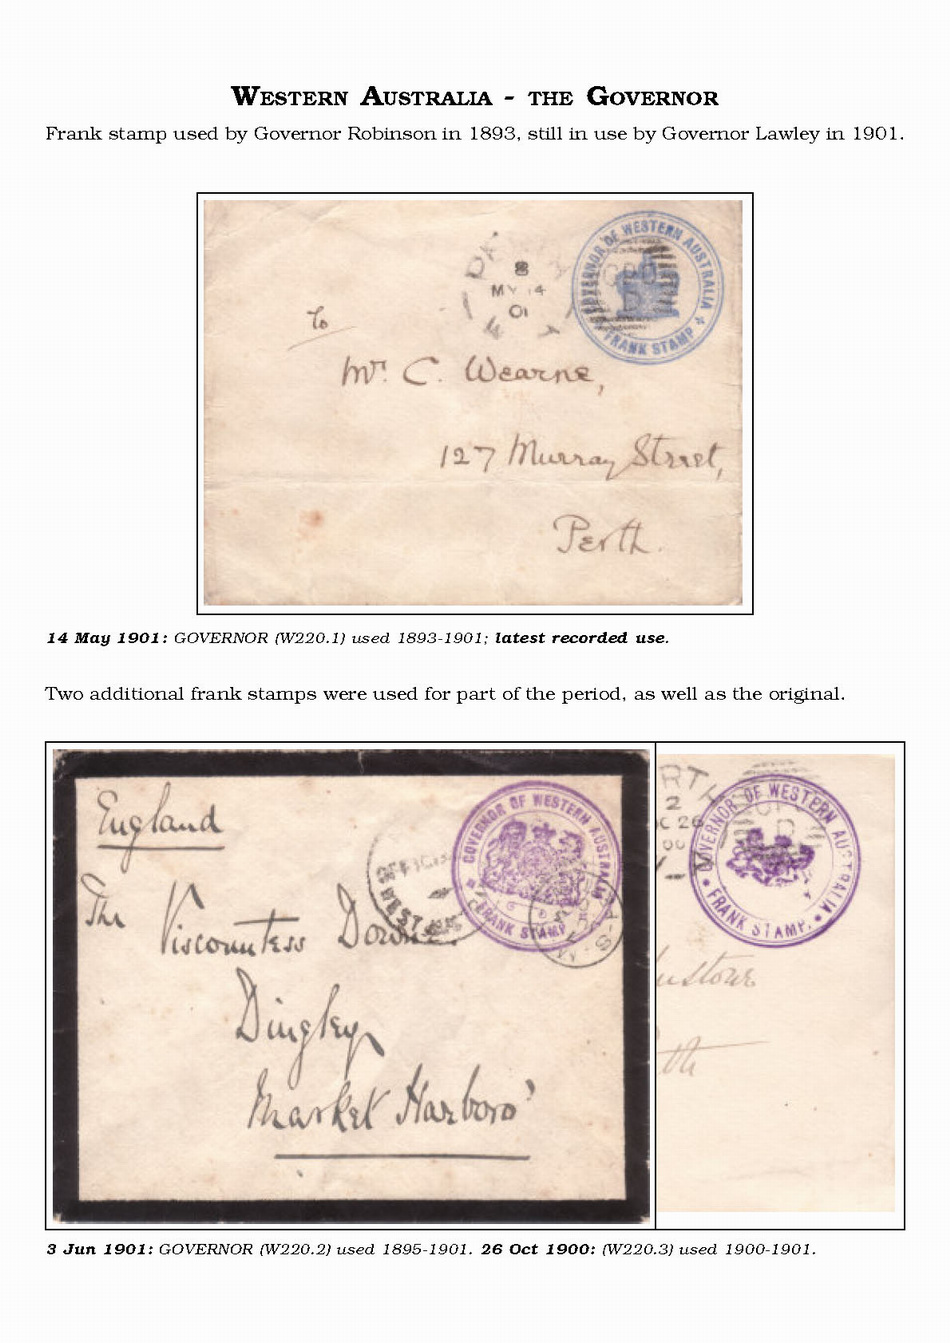 WESTERN AUSTRALIA - THE GOVERNOR
Frank stamp used by Governor Robinson in 1893, still in use by Governor Lawley in 1901.
GOVERNOR OF WESTERN AUSTRALIA
FRANK STAMP
8
MY 14
01
GPO
To
Mr. C. Wearne,
127 Murray Street,
Perth.
14 May 1901: GOVERNOR (W220.1) used 1893-1901; latest recorded use.
Two additional frank stamps were used for part of the period, as well as the original.
England
GOVERNOR OF WESTERN AUSTRALIA
FRANK STAMP
The Viscountess Downe
Dingley
Market Harboro'
RTH
2
C 26
00
GOVERNOR OF WESTERN AUSTRALIA
FRANK STAMP.
3 Jun 1901: GOVERNOR (W220.2) used 1895-1901. 26 Oct 1900: (W220.3) used 1900-1901.